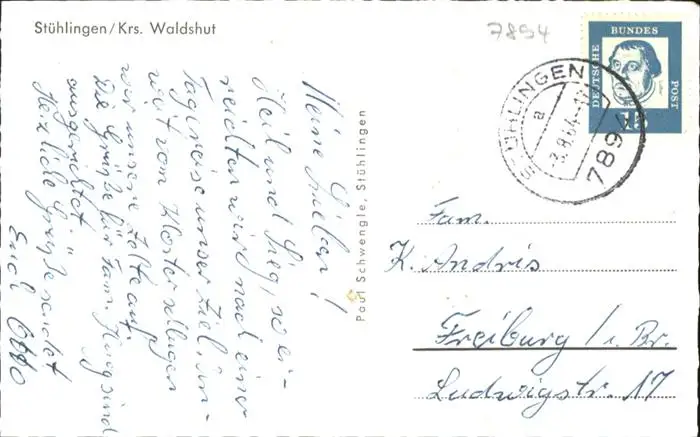 Stühlingen/Krs. Waldshut
7894
DEUTSCHE BUNDESPOST
15
STÜHLINGEN
a
3.8.64
789
Meine Lieben!
Heil und Sieg, so er-
reichten wir nach einer
Tagesreise unser Ziel. Un-
weit vom Kloster
wir unsere Zelte auf.
Die Grüße für Fam. sind
ausgerichtet.
Herzliche Grüße sendet
Euch Otto
Paul Schwengle, Stühlingen
Fam.
K. Andris
Freiburg / i. Br.
Ludwigstr. 17